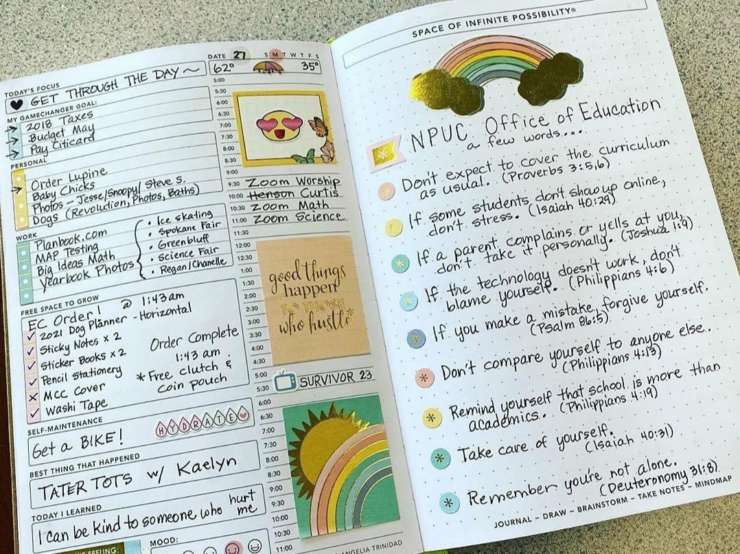 DATE 27 S M T W T F S
TODAY'S FOCUS
GET THROUGH THE DAY ~
62° 35°
MY GAMECHANGER GOAL:
2018 Taxes
Budget May
Pay Citicard
PERSONAL
Order Lupine
Baby Chicks
Photos - Jesse/Snoopy/ Steve S.
Dogs (Revolution, Photos, Baths)
WORK
Planbook.com
MAP Testing
Big Ideas Math
Yearbook Photos
• Ice Skating
• Spokane Fair
• Greenbluff
• Science Fair
• Regan/Chanelle
FREE SPACE TO GROW
EC Order! @ 1:43am
✓ 2021 Dog Planner - Horizontal
✓ Sticky Notes x 2
✓ Sticker Books x 2
✓ Pencil Stationery
X MCC Cover
✓ Washi Tape
Order Complete
1:43 am
* Free Clutch &
coin pouch
SELF-MAINTENANCE
Get a BIKE!
HYDRATE
BEST THING THAT HAPPENED
TATER TOTS w/ Kaelyn
TODAY I LEARNED
I can be kind to someone who hurt
me
FEELING
MOOD:
5:00
5:30
6:00
6:30
7:00
7:30
8:00
8:30
9:00
9:30 Zoom Worship
10:00 Henson Curtis
10:30 Zoom Math
11:00 Zoom Science
11:30
12:00
12:30
1:00
1:30
2:00
2:30
3:00
3:30
4:00
4:30
5:00
5:30
good things
happen
who hustle
SURVIVOR 23
6:00
6:30
7:00
7:30
8:00
8:30
9:00
9:30
10:00
10:30
11:00
ANGELIA TRINIDAD
SPACE OF INFINITE POSSIBILITY®
NPUC Office of Education
a few words...
* Don't expect to cover the curriculum
as usual. (Proverbs 3:5,6)
* If some students don't show up online,
don't stress. (Isaiah 40:29)
* If a parent complains or yells at you,
don't take it personally. (Joshua 1:9)
* If the technology doesn't work, don't
blame yourself. (Philippians 4:6)
* If you make a mistake, forgive yourself.
(Psalm 86:5)
* Don't compare yourself to anyone else.
(Philippians 4:13)
* Remind yourself that school is more than
academics. (Philippians 4:19)
* Take care of yourself.
(Isaiah 40:31)
* Remember you're not alone.
(Deuteronomy 31:8)
JOURNAL - DRAW - BRAINSTORM - TAKE NOTES - MINDMAP